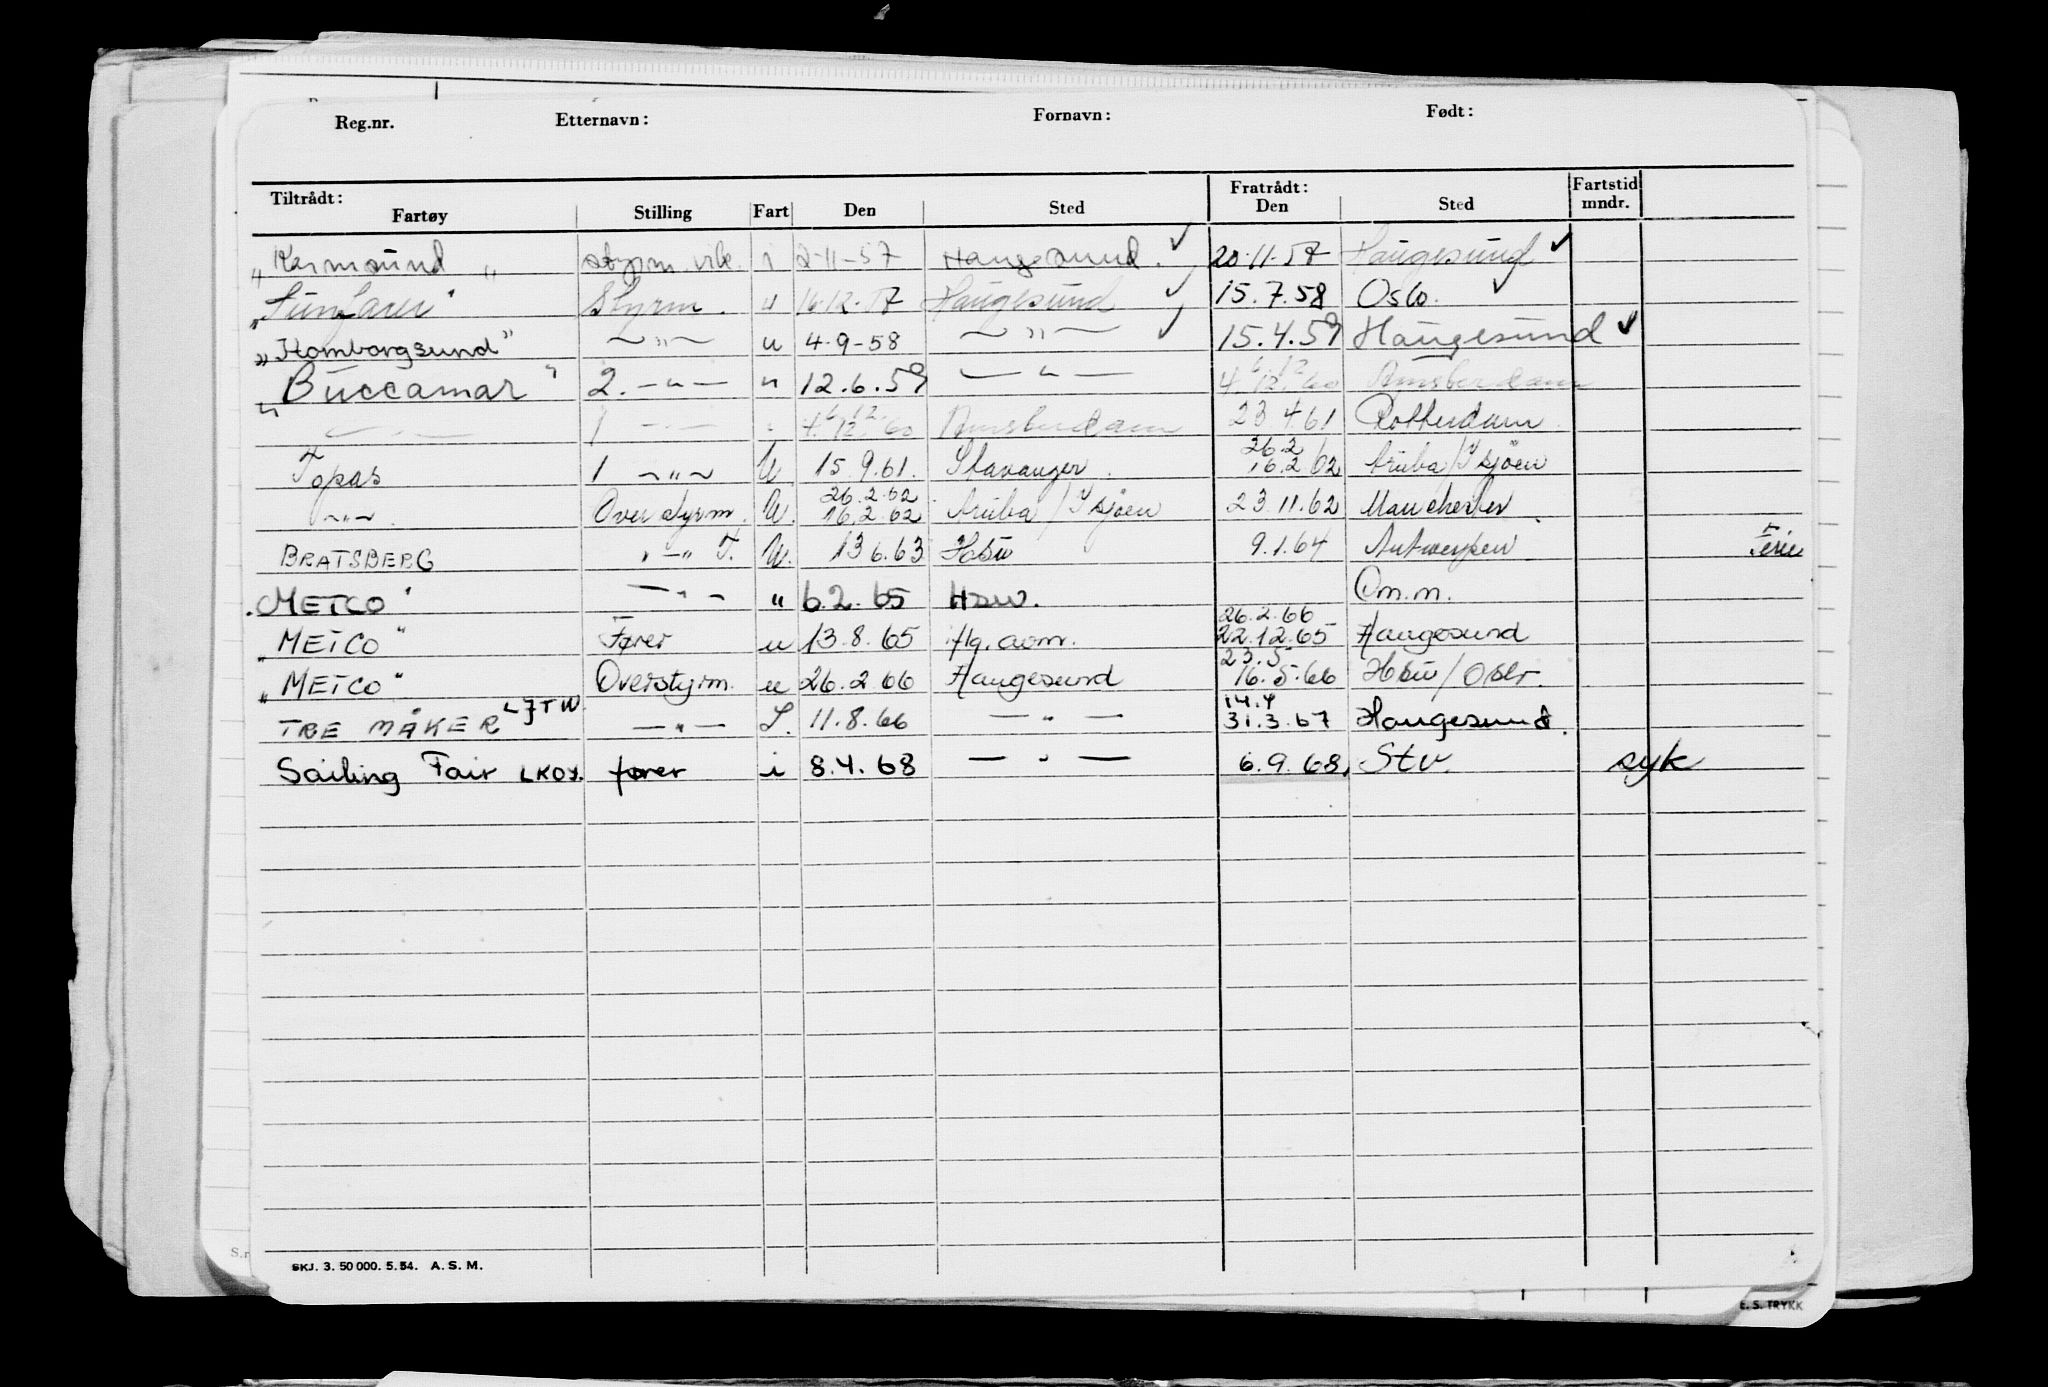 Reg.nr. Etternavn: Fornavn: Født:
Tiltrådt: Fratrådt: Fartstid
Fartøy Stilling Fart Den Sted Den Sted mndr.
"Karmsund" styrm. vik. i 2-11-57 Haugesund. ✓ 20.11.57 Haugesund ✓
"Sunfarer" Styrm. u 16.12.57 Haugesund ✓ 15.7.58 Oslo. ✓
"Homborgsund" —"— u 4-9-58 —"— ✓ 15.4.59 Haugesund ✓
"Buccamar" 2. —"— " 12.6.59 —"— 6.12 4.12.60 Amsterdam
—"— 1 —"— " 6.12. 4.12.60 Amsterdam 23 4.61 Rotterdam
Topas 1 —"— U 15 9.61. Stavanger. 26.2 16.2 62 Aruba/Tsjøen
—"—. Overstyrm. U. 26.2.62 16.2.62 Aruba/Tsjøen 23 11.62 Manchester.
BRATSBERG "—" T. U. 13 6.63 Hsu 9.1.64 Antwerpen Ferie
"METCO" —"— " 6.2.65 Hsu. Om.m.
"METCO" Fører u 13.8.65 Hg. aom. 26.2.66 22.12.65 Haugesund
"METCO" Overstyrm. u 26.2.66 Haugesund 23.5 16.5.66 Hsu/Oslr.
TRE MÅKER LJTW —"— S. 11.8.66 —"— 14.4 31.3.67 Haugesund.
Sailing Fair LKOY. fører i 8.4.68 —"— 6.9.68. Stv. syk
SKJ. 3. 50 000. 5. 54. A. S. M.
E. S. TRYKK